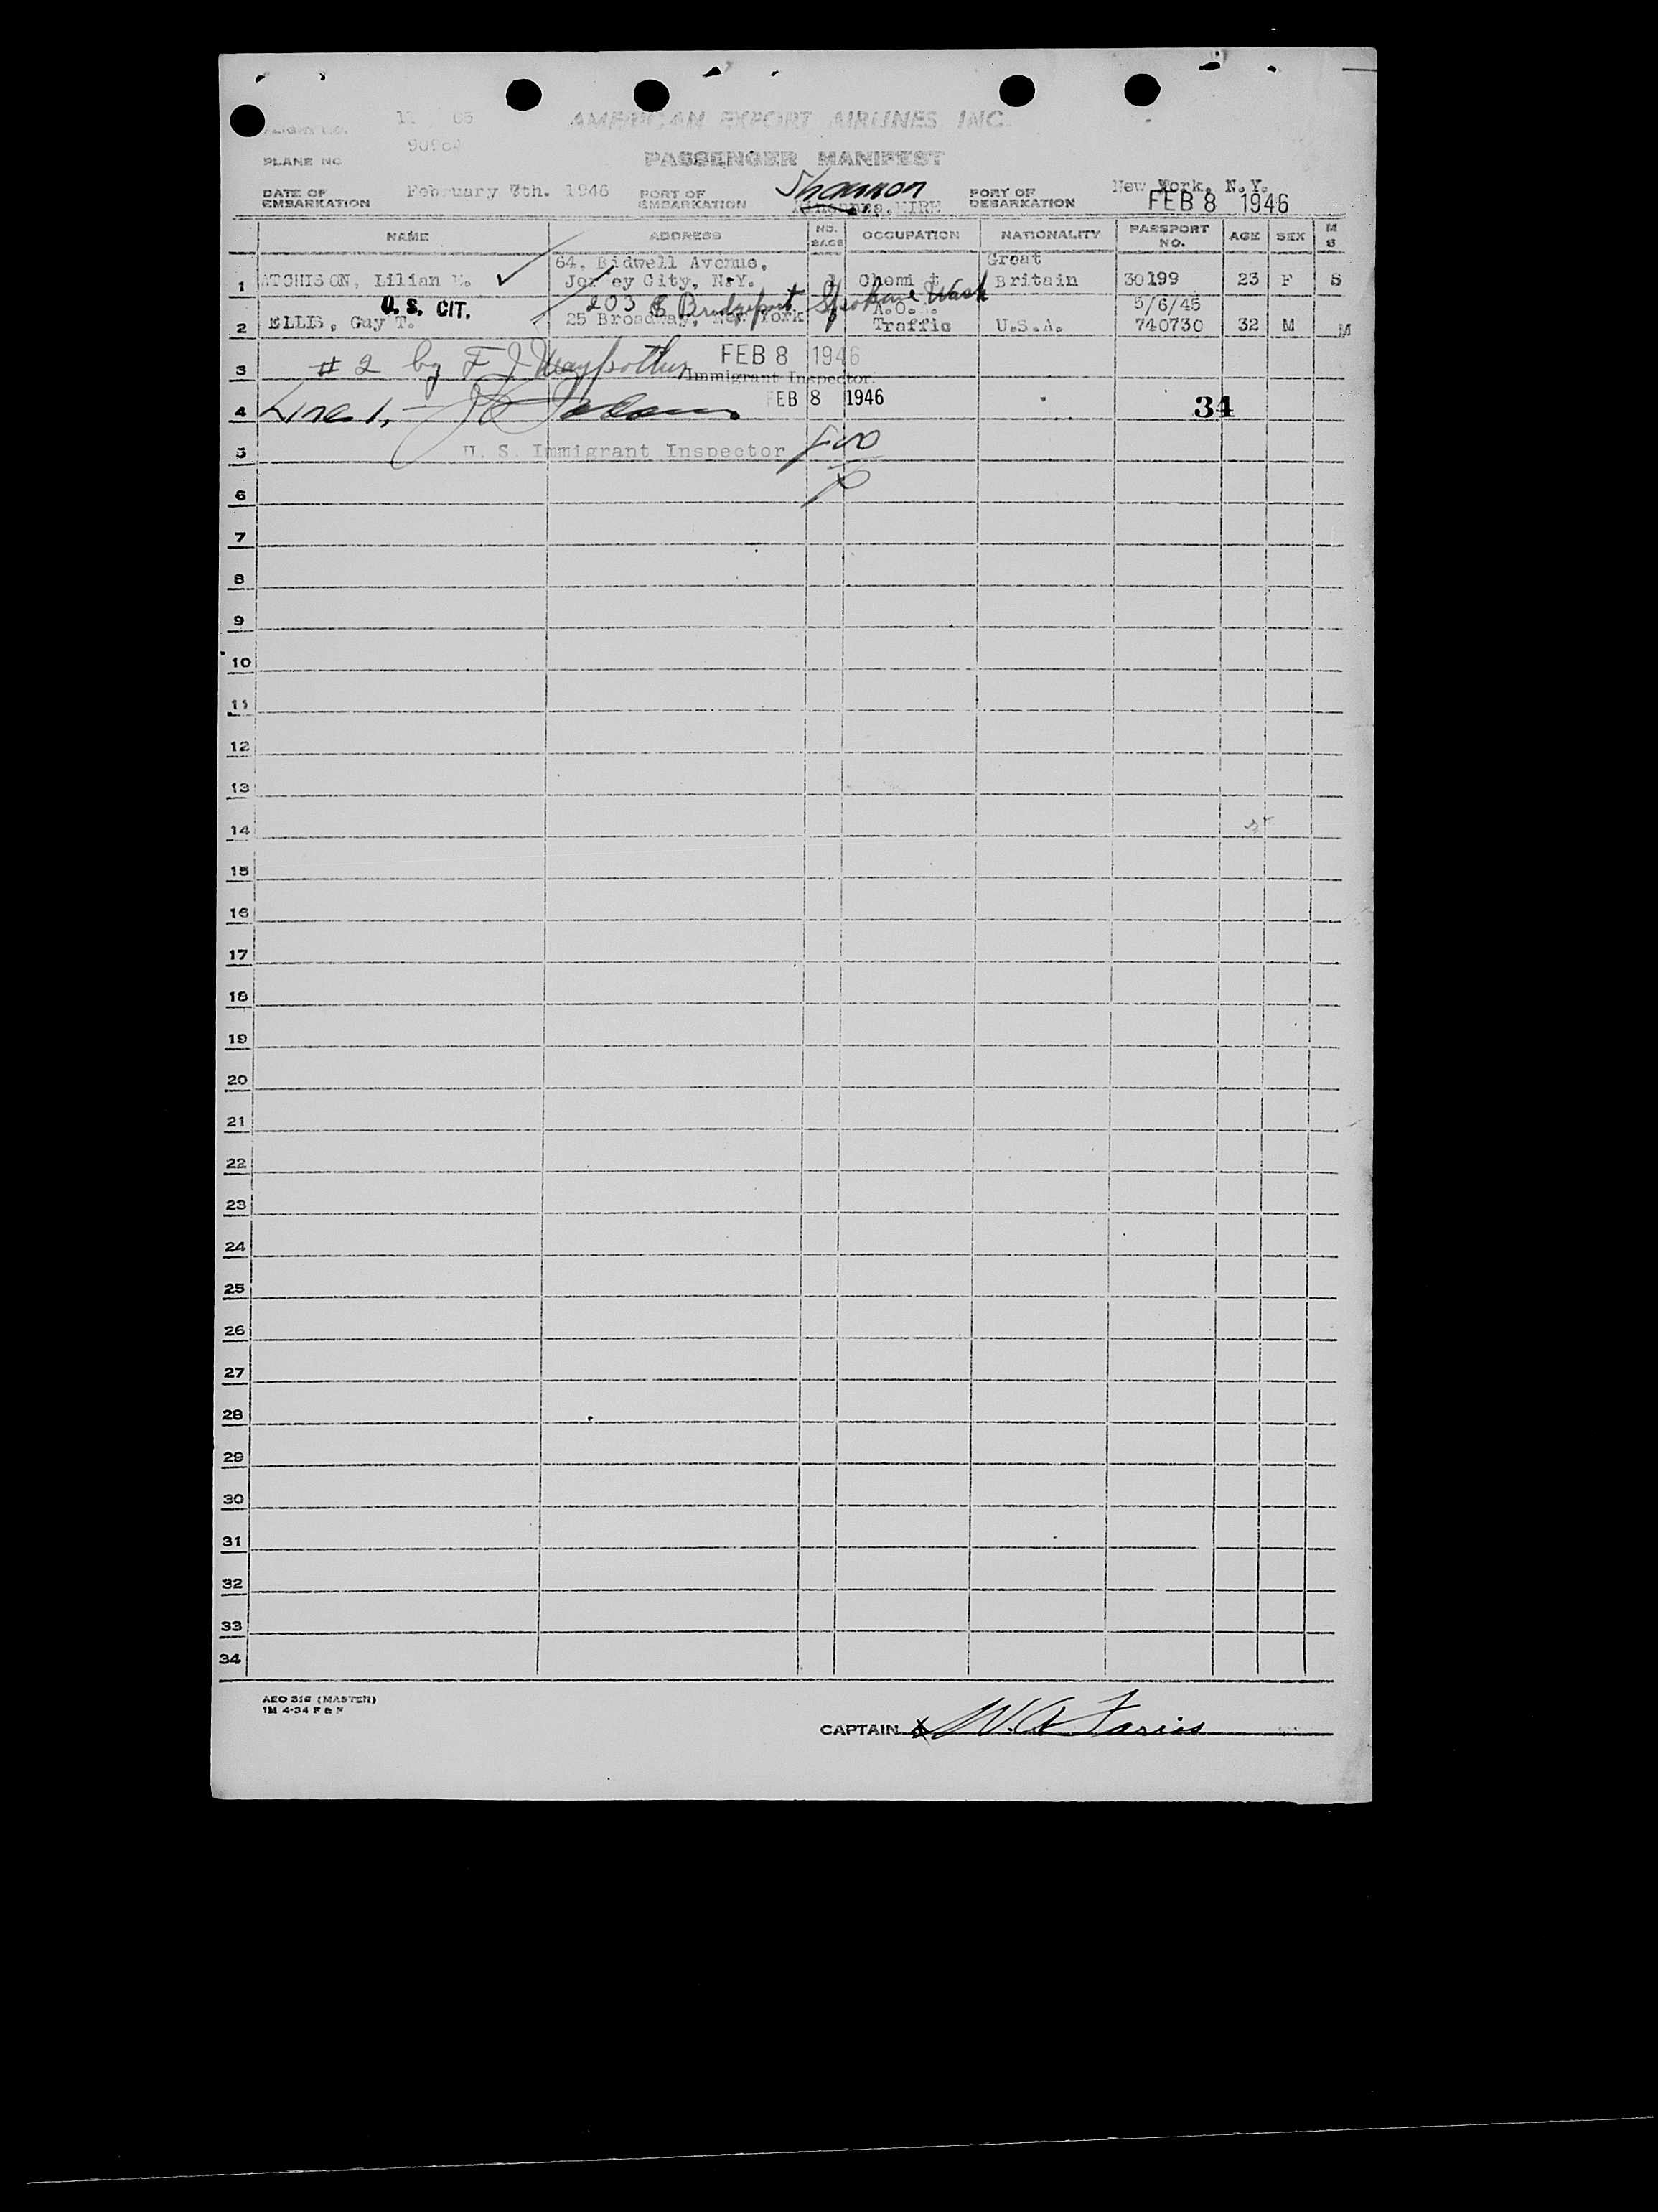 AMERICAN EXPORT AIRLINES, INC.
PLANE NO
PASSENGER MANIFEST
DATE OF EMBARKATION February 7th. 1946 PORT OF EMBARKATION Shannon EIRE PORT OF DEBARKATION New York, N.Y.
FEB 8 1946
NAME ADDRESS NO. BAGS OCCUPATION NATIONALITY PASSPORT NO. AGE SEX M S
64, Bidwell Avenue, Great
1 ATCHISON, Lilian Jersey City, N.Y. Britain 30199 23 F S
U.S. CIT. 203 Bridgeport Spokane Wash 5/6/45
2 ELLIS, Guy T. 25 Broadway, New York Traffic U.S.A. 740730 32 M M
3 # 2 by F J FEB 8 1946
Immigrant Inspector.
4 Line 1, FEB 8 1946 34
5 U. S. Immigrant Inspector
6
7
8
9
10
11
12
13
14
15
16
17
18
19
20
21
22
23
24
25
26
27
28
29
30
31
32
33
34
AEO 316 (MASTER)
CAPTAIN W.A. Farios